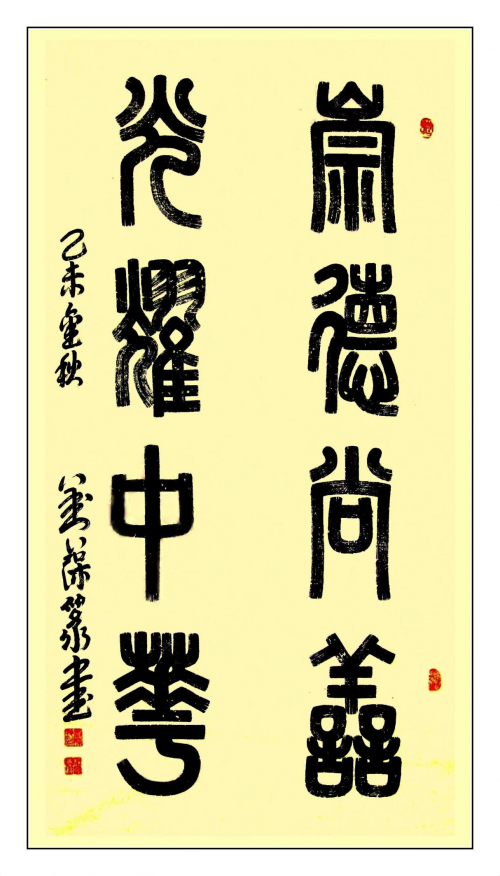 崇德尚譱
光耀中華
乙未金秋
篆書